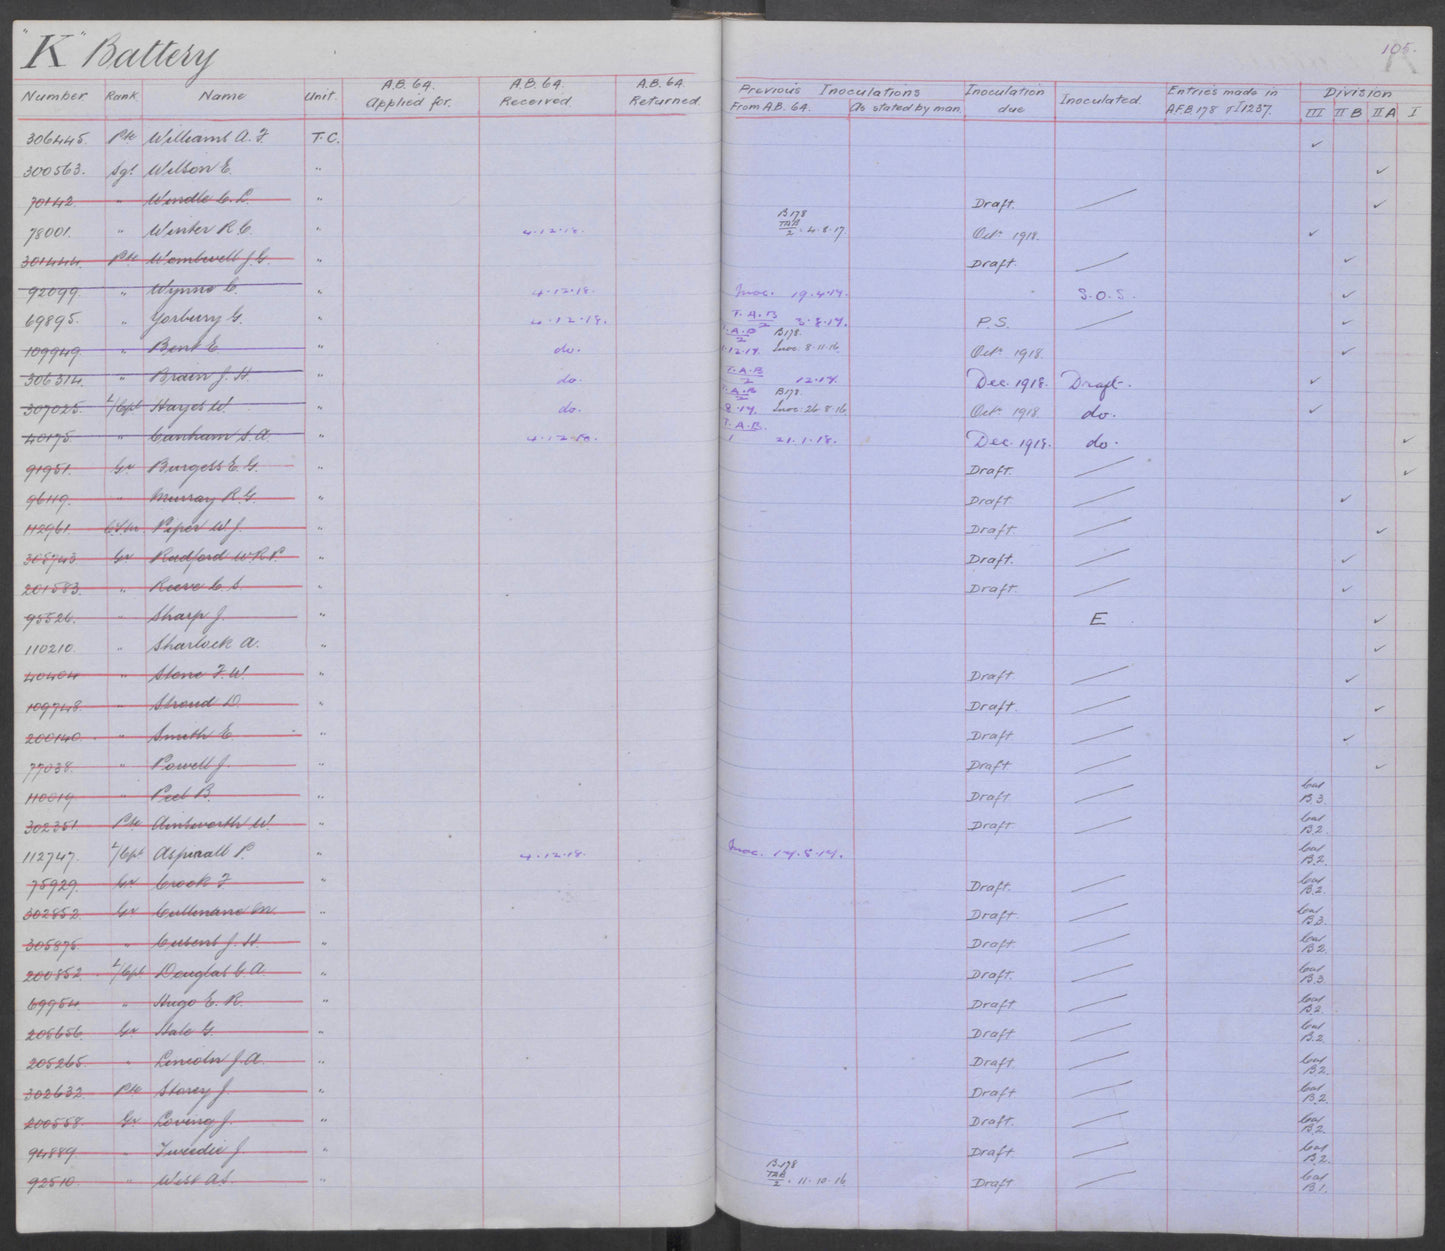 "K" Battery
105.
Number Rank Name Unit. A.B. 64. Applied for. A.B. 64. Received A.B. 64 Returned. Previous Inoculations From A.B. 64. As stated by man. Inoculation due Inoculated. Entries made in A.F.B. 178 & I 1237. Division III II B II A I
306445. Pte Williams A. F. T.C. ✓
300563. Sgt Wilson E. " ✓
70142. " Windle C. L. " Draft. / ✓
78001. " Winter R. C. " 4.12.18. B178 TAB/2 . 4.8.17. Octr 1918. ✓
301444. Pte Wombwell J. G. " Draft. / ✓
92099. " Wynne C. " 4.12.18. Inoc. 19.4.17. S.O.S. ✓
69895. " Yorbury G. " 4.12.18. T.A.B/2 3.8.17. P.S. / ✓
109949. " Bent E. " do. T.A.B/2 .12.17. B178. Inoc. 8.11.16. Octr 1918. ✓
306314. " Brain J. H. " do. T.A.B/2 12.17. Dec. 1918. Draft. ✓
307025. L/Cpl Hayes W. " do. T.A.B/2 8.17. B178. Inoc. 26.8.16 Octr 1918 do. ✓
40175. " Canham S. A. " 4.12.18. T.A.B./1 21.1.18. Dec. 1918. do. ✓
91951. Gr Burgess E. G. " Draft. / ✓
96119. " Murray R. G. " Draft / ✓
112961. Piper W. J. " Draft / ✓
305743 Gr Radford W. R. P. " Draft. / ✓
201583. " Reeve C. S. " Draft. / ✓
95526. " Sharp J. " E ✓
110210. " Sharlock A. " ✓
40404 " Stone F. W. " Draft / ✓
109748. " Stroud D. " Draft / ✓
200140. " Smith E. " Draft / ✓
77038. " Powell J. " Draft / ✓
110019. " Peel B. " Draft / Cat B.3.
302351. Pte Ainsworth W. " Draft / Cat B.2.
112747. L/Cpl Aspinall P. " 4.12.18. Inoc. 17.5.17. Cat B.2.
75929. Gr Crook F. " Draft. / Cat B.2.
302852. Gr Cullinane M. " Draft / Cat B.3.
305875. " Cusens J. H. " Draft / Cat B.2.
200852. L/Cpl Douglas G. A. " Draft. / Cat B.3
69954. " Hugo E. R. " Draft / Cat B.2.
205656. Gr Hale G. " Draft / Cat B.2.
205265. " Lincoln J. A. " Draft / Cat B.2.
302632 Pte Storey J. " Draft / Cat B.2
200558. Gr Loving J. " Draft. / Cat B.2.
94889. " Tweedie J. " Draft / Cat B.2.
92510. " West A. S. " B178 TAB/2 . 11.10.16 Draft / Cat B.1.